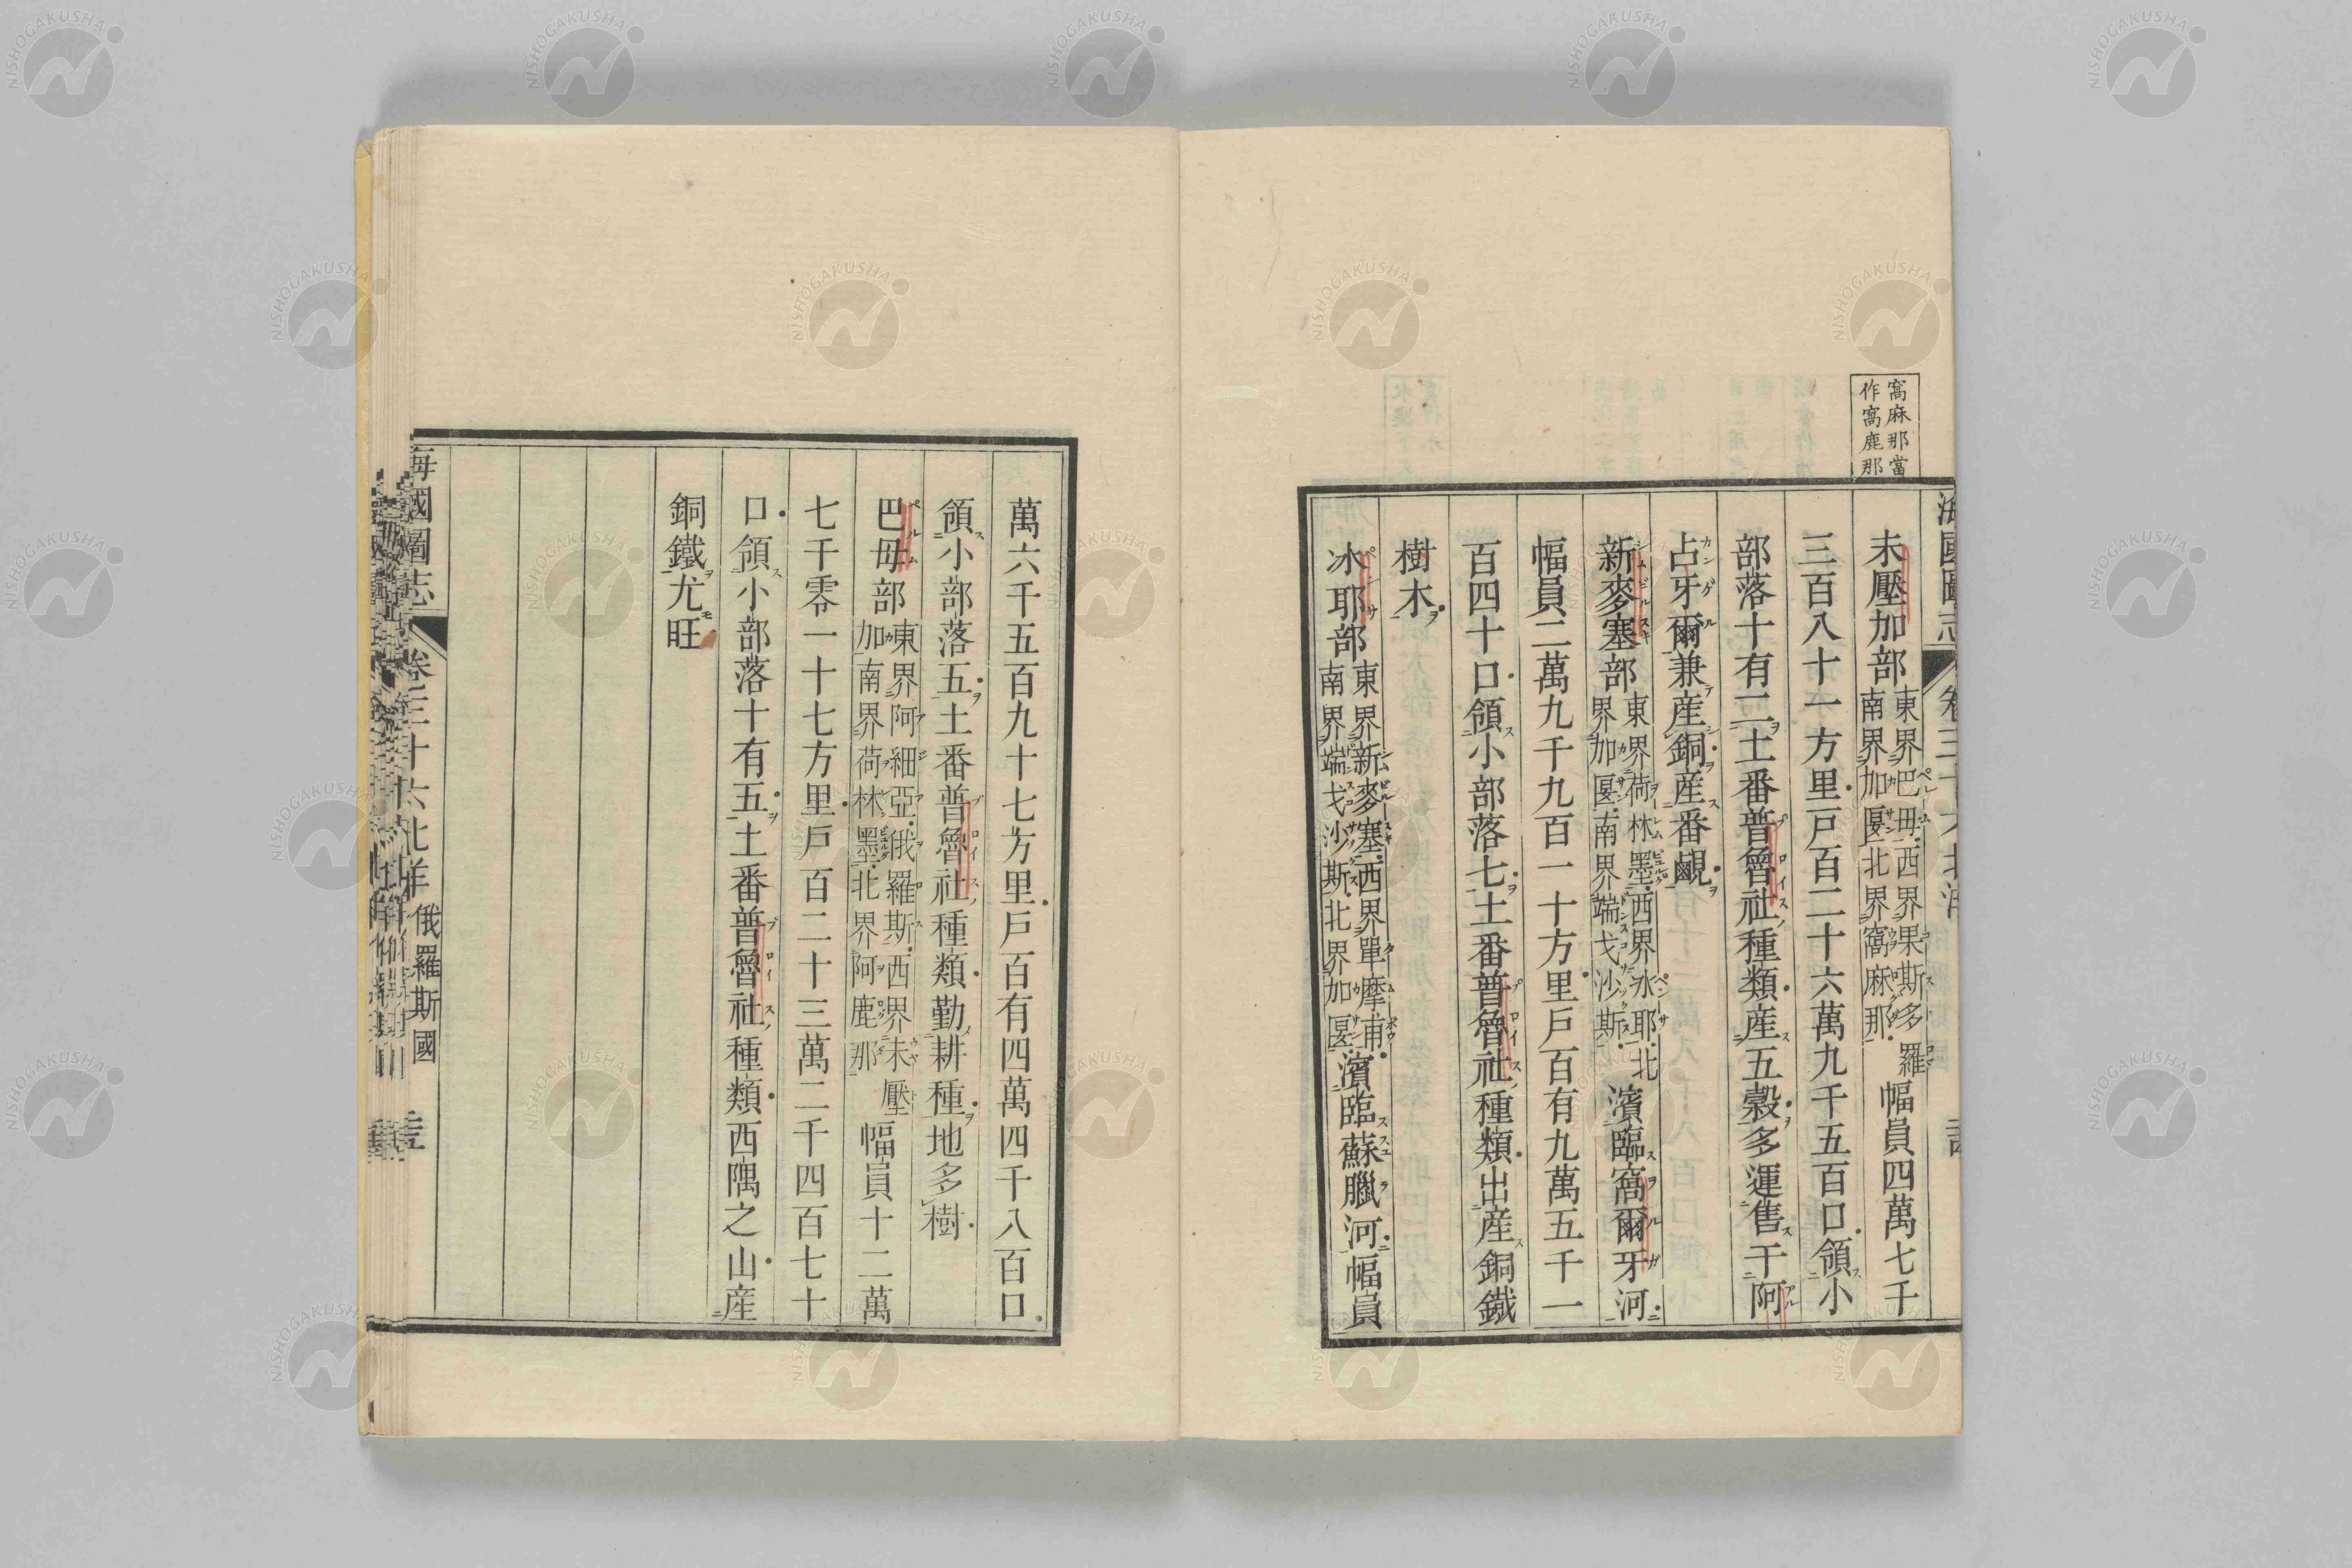 窩麻那當
作窩鹿那
未壓加部東界巴毋西界果斯多羅南界加匽北界窩麻那幅員四萬七千
三百八十一方里戸百二十六萬九千五百口領小
部落十有二土番普魯社種類産五穀多運售于阿
占牙爾兼産銅産番鹻
新麥塞部東界荷林墨西界氷耶北界加匽南界端戈沙斯濱臨窩爾牙河
幅員二萬九千九百一十方里戸百有九萬五千一
百四十口領小部落七土番普魯社種類出産銅鐵
樹木
氷耶部東界新麥塞西界單摩甫南界端戈沙斯北界加匽濱臨蘇臘河幅員
萬六千五百九十七方里戸百有四萬四千八百口
領小部落五土番普魯社種類勤耕種地多樹
巴毋部東界阿細亞俄羅斯西界未壓加南界荷林墨北界阿鹿那幅員十二萬
七千零一十七方里戸百二十三萬二千四百七十
口領小部落十有五土番普魯社種類西隅之山産
銅鐵尤旺
海國圖志 卷三十六北洋 俄羅斯國
NISHOGAKUSHA